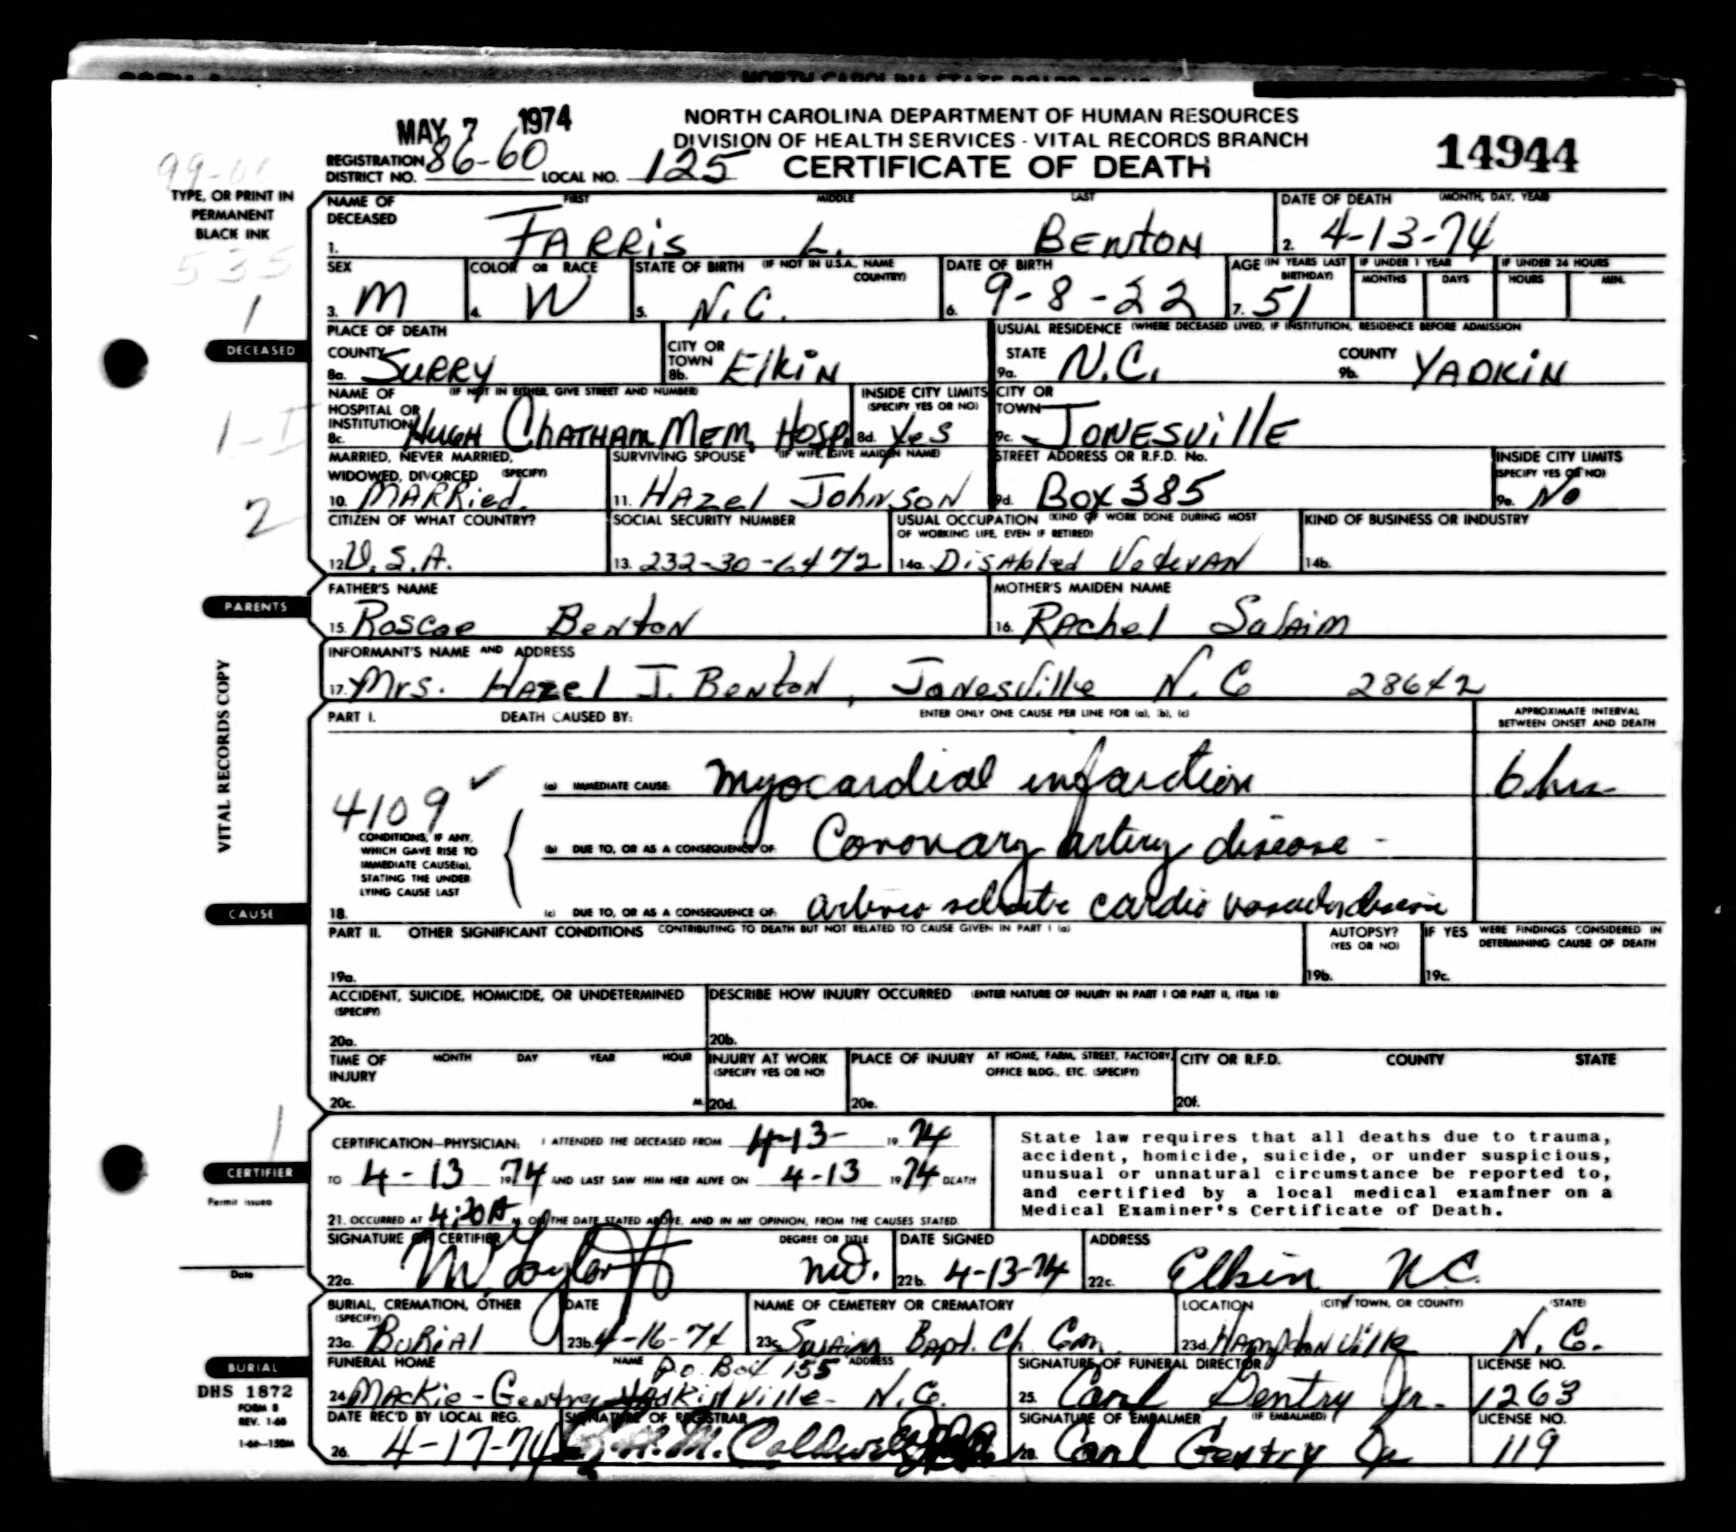 MAY 7 1974
NORTH CAROLINA DEPARTMENT OF HUMAN RESOURCES
DIVISION OF HEALTH SERVICES - VITAL RECORDS BRANCH
CERTIFICATE OF DEATH
14944
REGISTRATION DISTRICT NO. 86-60 LOCAL NO. 125
TYPE, OR PRINT IN
PERMANENT
BLACK INK
535
NAME OF DECEASED FIRST MIDDLE LAST
1. FARRIS L. BENTON
DATE OF DEATH (MONTH, DAY, YEAR)
2. 4-13-74
SEX
3. M
COLOR OR RACE
4. W
STATE OF BIRTH (IF NOT IN U.S.A., NAME COUNTRY)
5. N.C.
DATE OF BIRTH
6. 9-8-22
AGE (IN YEARS LAST BIRTHDAY)
7. 51
IF UNDER 1 YEAR
MONTHS DAYS
IF UNDER 24 HOURS
HOURS MIN.
1
DECEASED
PLACE OF DEATH
COUNTY
8a. SURRY
CITY OR TOWN
8b. Elkin
USUAL RESIDENCE (WHERE DECEASED LIVED, IF INSTITUTION, RESIDENCE BEFORE ADMISSION
STATE
9a. N.C.
COUNTY
9b. YADKIN
NAME OF HOSPITAL OR INSTITUTION (IF NOT IN EITHER, GIVE STREET AND NUMBER)
8c. HUGH CHATHAM MEM. HOSP.
INSIDE CITY LIMITS (SPECIFY YES OR NO)
8d. Yes
CITY OR TOWN
9c. JONESville
MARRIED, NEVER MARRIED, WIDOWED, DIVORCED (SPECIFY)
10. MARRied.
SURVIVING SPOUSE (IF WIFE, GIVE MAIDEN NAME)
11. HAzel JohNSON
STREET ADDRESS OR R.F.D. No.
9d. Box 385
INSIDE CITY LIMITS (SPECIFY YES OR NO)
9e. No
2
CITIZEN OF WHAT COUNTRY?
12. U.S.A.
SOCIAL SECURITY NUMBER
13. 232-30-6472
USUAL OCCUPATION (KIND OF WORK DONE DURING MOST OF WORKING LIFE, EVEN IF RETIRED)
14a. Disabled VeterAN
KIND OF BUSINESS OR INDUSTRY
14b.
PARENTS
FATHER'S NAME
15. Roscoe BENTON
MOTHER'S MAIDEN NAME
16. RAchel
INFORMANT'S NAME AND ADDRESS
17. Mrs. HAzel J. BENTON, Jonesville N.C 28642
VITAL RECORDS COPY
PART I. DEATH CAUSED BY: ENTER ONLY ONE CAUSE PER LINE FOR (a), (b), (c)
APPROXIMATE INTERVAL BETWEEN ONSET AND DEATH
4109
(a) IMMEDIATE CAUSE: Myocardial infarction 6 hrs
CONDITIONS, IF ANY, WHICH GAVE RISE TO IMMEDIATE CAUSE(a), STATING THE UNDER LYING CAUSE LAST
(b) DUE TO, OR AS A CONSEQUENCE OF: Coronary artery disease -
(c) DUE TO, OR AS A CONSEQUENCE OF: cardio vascular disease
CAUSE
18.
PART II. OTHER SIGNIFICANT CONDITIONS CONTRIBUTING TO DEATH BUT NOT RELATED TO CAUSE GIVEN IN PART I (a)
19a.
AUTOPSY? (YES OR NO)
19b.
IF YES WERE FINDINGS CONSIDERED IN DETERMINING CAUSE OF DEATH
19c.
ACCIDENT, SUICIDE, HOMICIDE, OR UNDETERMINED (SPECIFY)
20a.
DESCRIBE HOW INJURY OCCURRED (ENTER NATURE OF INJURY IN PART I OR PART II, ITEM 18)
20b.
TIME OF INJURY MONTH DAY YEAR HOUR
20c. M.
INJURY AT WORK (SPECIFY YES OR NO)
20d.
PLACE OF INJURY AT HOME, FARM, STREET, FACTORY, OFFICE BLDG., ETC. (SPECIFY)
20e.
CITY OR R.F.D. COUNTY STATE
20f.
CERTIFIER
Permit issued
Date
CERTIFICATION—PHYSICIAN: I ATTENDED THE DECEASED FROM 4-13- 19 74
TO 4-13 1974 AND LAST SAW HIM HER ALIVE ON 4-13 1974 DEATH
21. OCCURRED AT 4:20A M. ON THE DATE STATED ABOVE, AND IN MY OPINION, FROM THE CAUSES STATED.
State law requires that all deaths due to trauma,
accident, homicide, suicide, or under suspicious,
unusual or unnatural circumstance be reported to,
and certified by a local medical examiner on a
Medical Examiner's Certificate of Death.
SIGNATURE OF CERTIFIER DEGREE OR TITLE
22a. MD.
DATE SIGNED
22b. 4-13-74
ADDRESS
22c. Elkin N.C.
BURIAL, CREMATION, OTHER (SPECIFY)
23a. BURIAl
DATE
23b. 4-16-74
NAME OF CEMETERY OR CREMATORY
23c. Swaim Bapt. Ch. Cem.
LOCATION (CITY TOWN, OR COUNTY) (STATE)
23d. HAmptonville N.C.
BURIAL
DHS 1872
FORM 8
REV. 1-68
1-69—150M
FUNERAL HOME NAME ADDRESS
P.O. Box 155
24. MAckie-Gentry YAdkinville- N.C.
SIGNATURE OF FUNERAL DIRECTOR
25. Carl Gentry Jr.
LICENSE NO.
1263
DATE REC'D BY LOCAL REG.
26. 4-17-74
SIGNATURE OF REGISTRAR
M. Caldwell
SIGNATURE OF EMBALMER (IF EMBALMED)
28. Carl Gentry Jr
LICENSE NO.
119